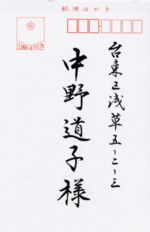 郵便はがき
台東区浅草五-二-三
中野道子様